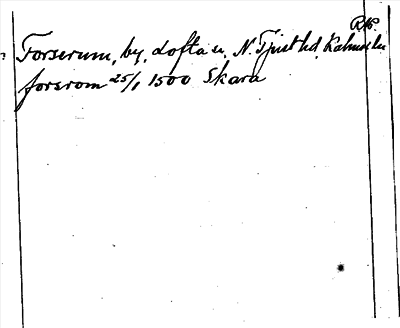 RAp.
Forserum, by, Lofta sn, N. Tjust hd, Kalmar län
forsrom 25/1 1500 Skara